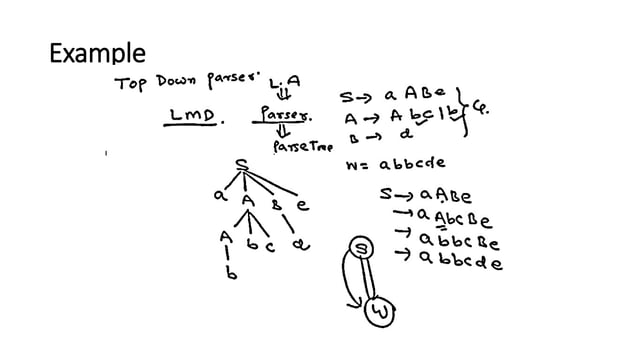 Example
Top Down Parser.
L.A
⇓
LMD. Parser.
⇓
Parse Tree
S → a A B e
A → A b c | b
B → d
G.
w = a b b c d e
S
a A B e
A b c d
b
S → a A B e
→ a A b c B e
→ a b b c B e
→ a b b c d e
S
W